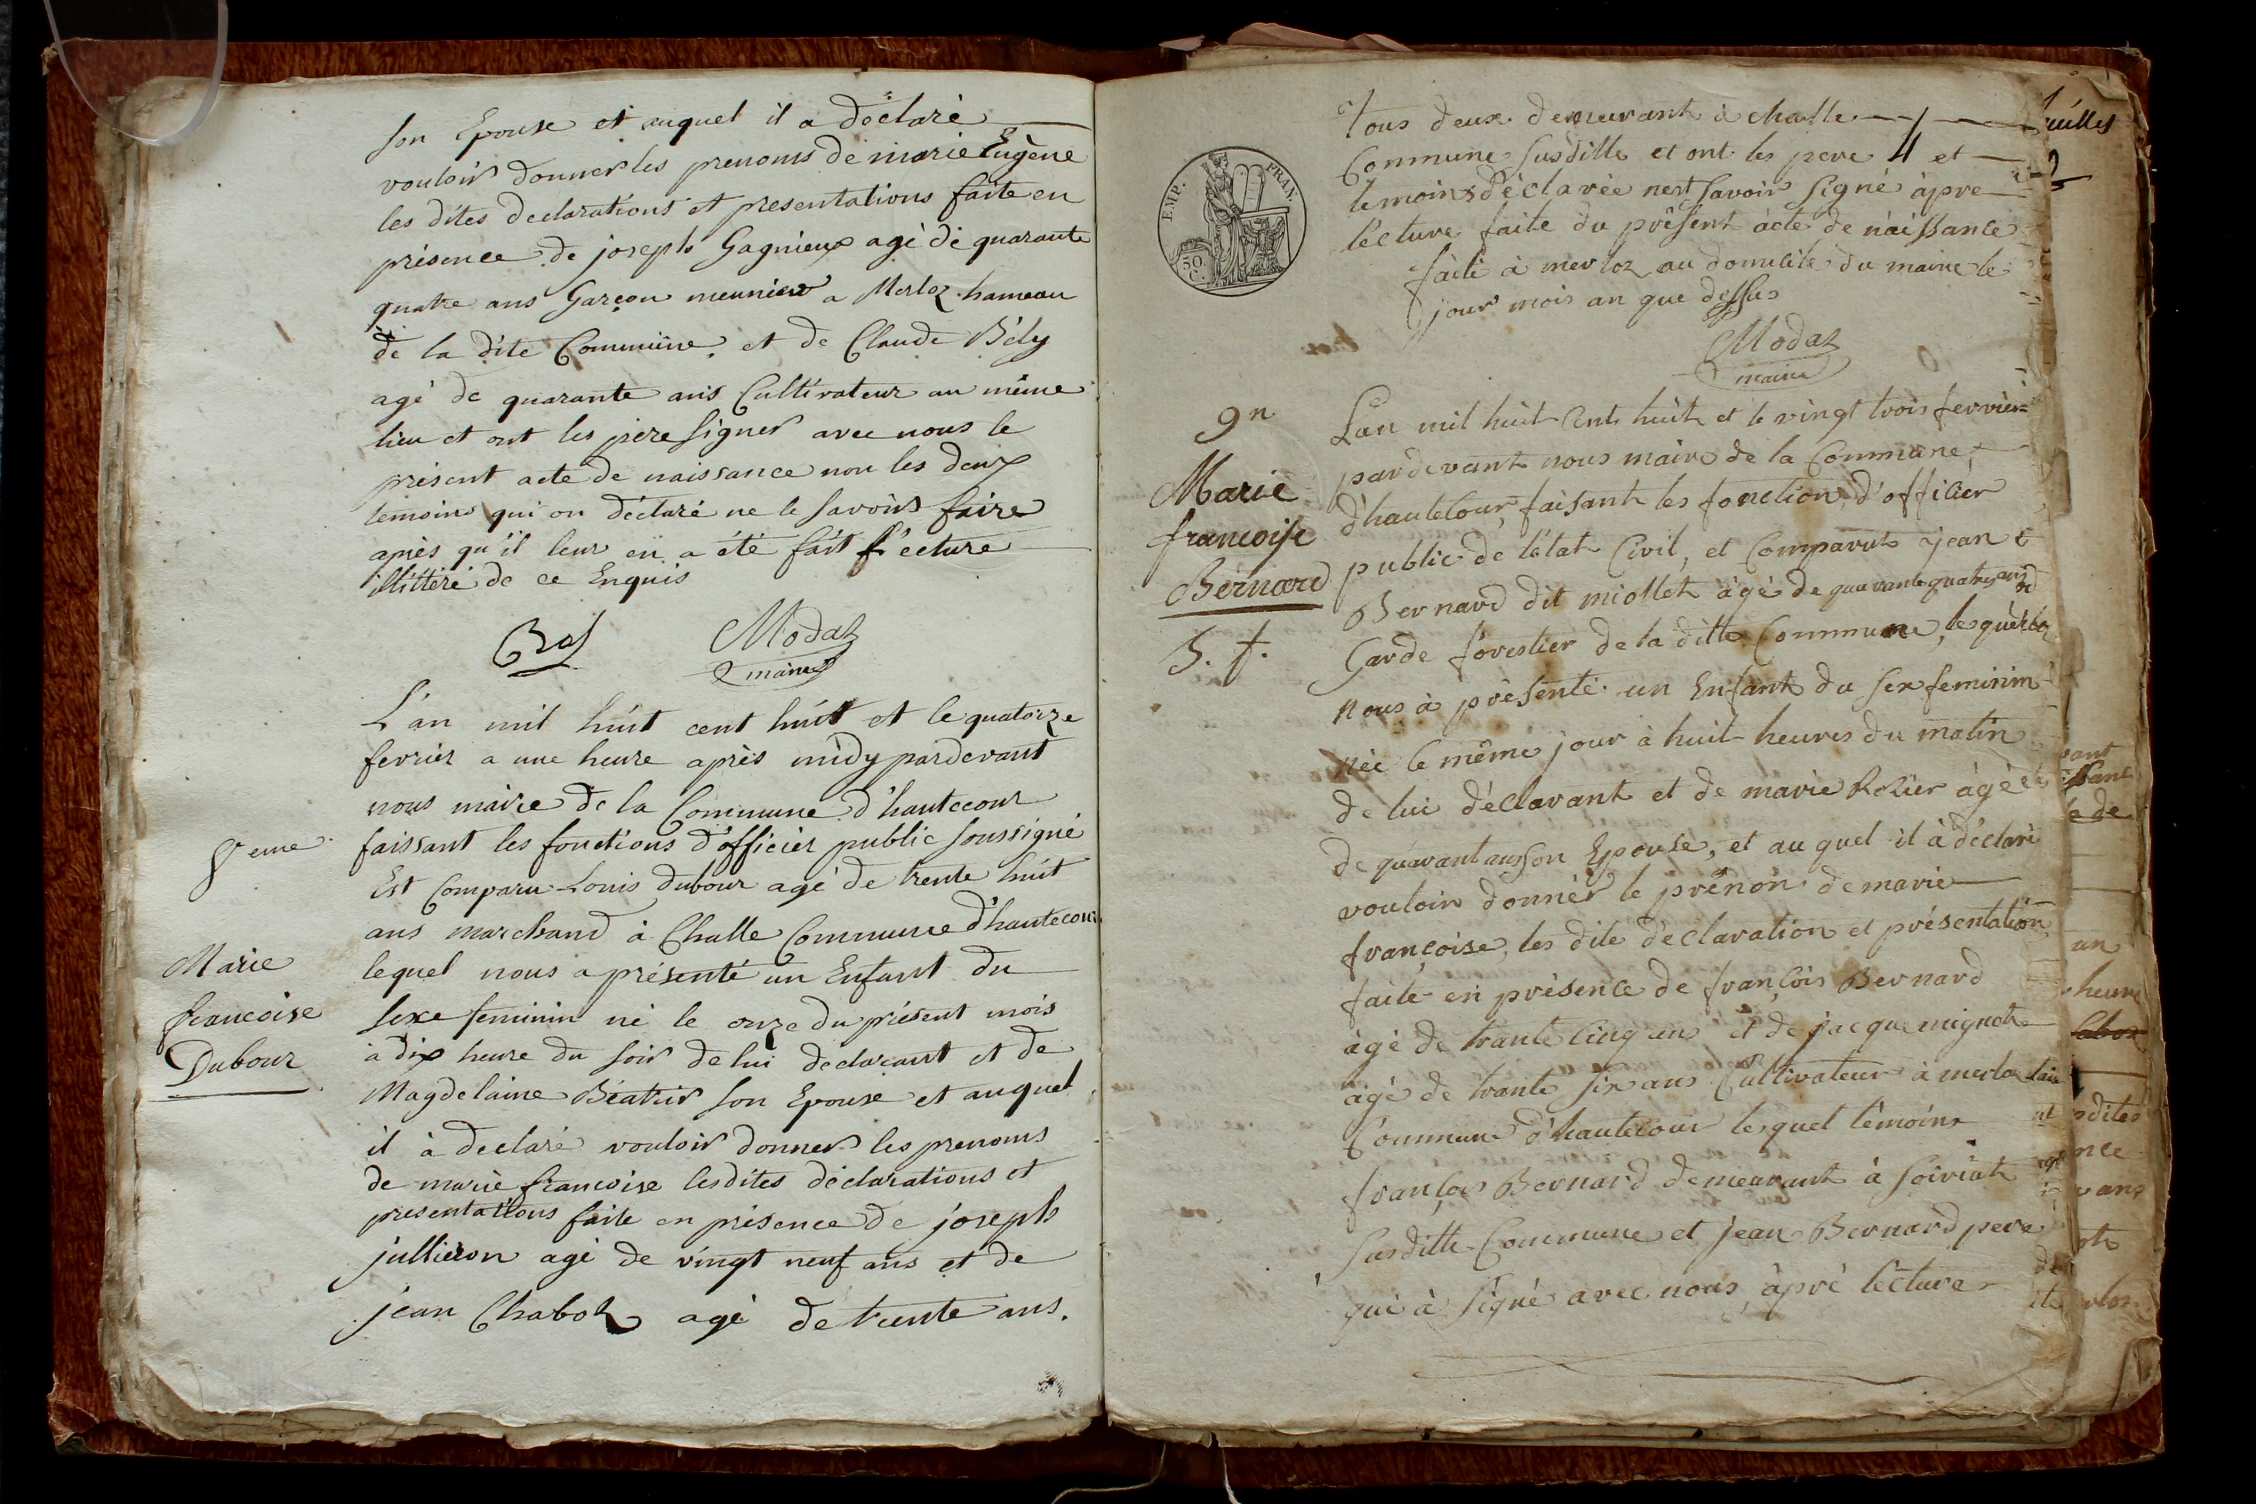 son Epouse et auquel il a déclaré
vouloir donner les prenoms de marie Eugène
les dites declarations et presentations faite en
présence de joseph Gagnieux agé de quarante
quatre ans Garçon meunier a Merloz hameau
de la dite Commune, et de Claude Bély
agé de quarante ans Cultivateur au même
lieu et ont les pere signer avec nous le
présent acte de naissance non les deux
temoins qui on déclaré ne le savoir faire
après qu'il leur en a été fait lécture
illitéré de ce Enquis
Modas
maire
8eme
Marie
francoise
Dubour
L'an mil huit cent huit et le quatorze
fevrier a une heure après midy pardevant
nous maire de la Commune d'hautecour
faissant les fonctions d'officier public soussigné
Est Comparu Louis dubour agé de trente huit
ans marchand à Challe Commune d'hautecour
lequel nous a présenté un Enfant du
sexe feminin né le onze du présent mois
a dix heure du soir de lui declarant et de
Magdelaine Béatrir son Epouse et auquel
il à declaré vouloir donner les prenoms
de marie francoise lesdites déclarations et
presentations faite en présence de joseph
jullieron agé de vingt neuf ans et de
jean Chaboz agé de trente ans.
EMP. FRAN.
50 C.
Tous deux demeurant à challe
Commune susditte et ont les pere et
temoins déclarée nest savoir signé àpre
lécture faite du présent àcte de nàissance
fàite à merloz au domicile du maire le
jour mois an que dessus
Modas
maire
9n
Marie
francoise
Bernard
5. f.
L'an mil huit Cent huit et le vingt trois fevrier
pardevant nous maire de la Commune
d'hautecour, faisant les fonction d'officier
public de l'état Civil, et Comparut jean
Bernard dit miollet àgé de quarante quatre ans
Garde forestier de la ditte Commune, lequel
nous à présenté un Enfant du sex feminim
née le même jour à huit heures du matin
de lui déclarant et de marie Rozier àgé
de quarant ans son Epouse, et au quel il à déclaré
vouloir donnér le prénon de marie
françoise, les dite déclaration et présentation
faite en présence de françois Bernard
àgé de trante cinq ans et de jacque mignot
àgé de trante six ans Cultivateur à merlo
Commune d'hautecour lesquel témoins
françois Bernard demeurant à soiriat
susditte Commune et jean Bernard pere
qui à signé avec nous, àpré lécture